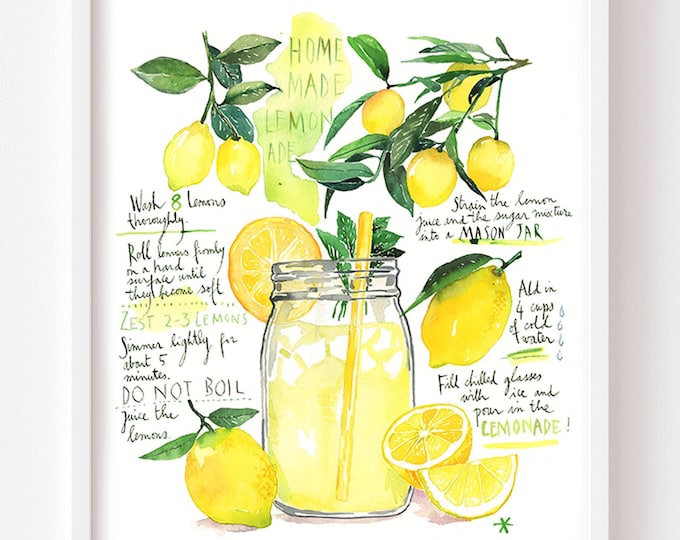 HOME
MADE
LEMON
ADE
Wash 8 Lemons
thoroughly.
Roll lemons firmly
on a hard
surface until
they become soft
ZEST 2-3 LEMONS
Simmer lightly for
about 5
minutes.
DO NOT BOIL
Juice the
lemons.
Strain the lemon
juice and the sugar mixture
into a MASON JAR
Add in
4 cups
of cold
water
Fill chilled glasses
with ice and
pour in the
LEMONADE!